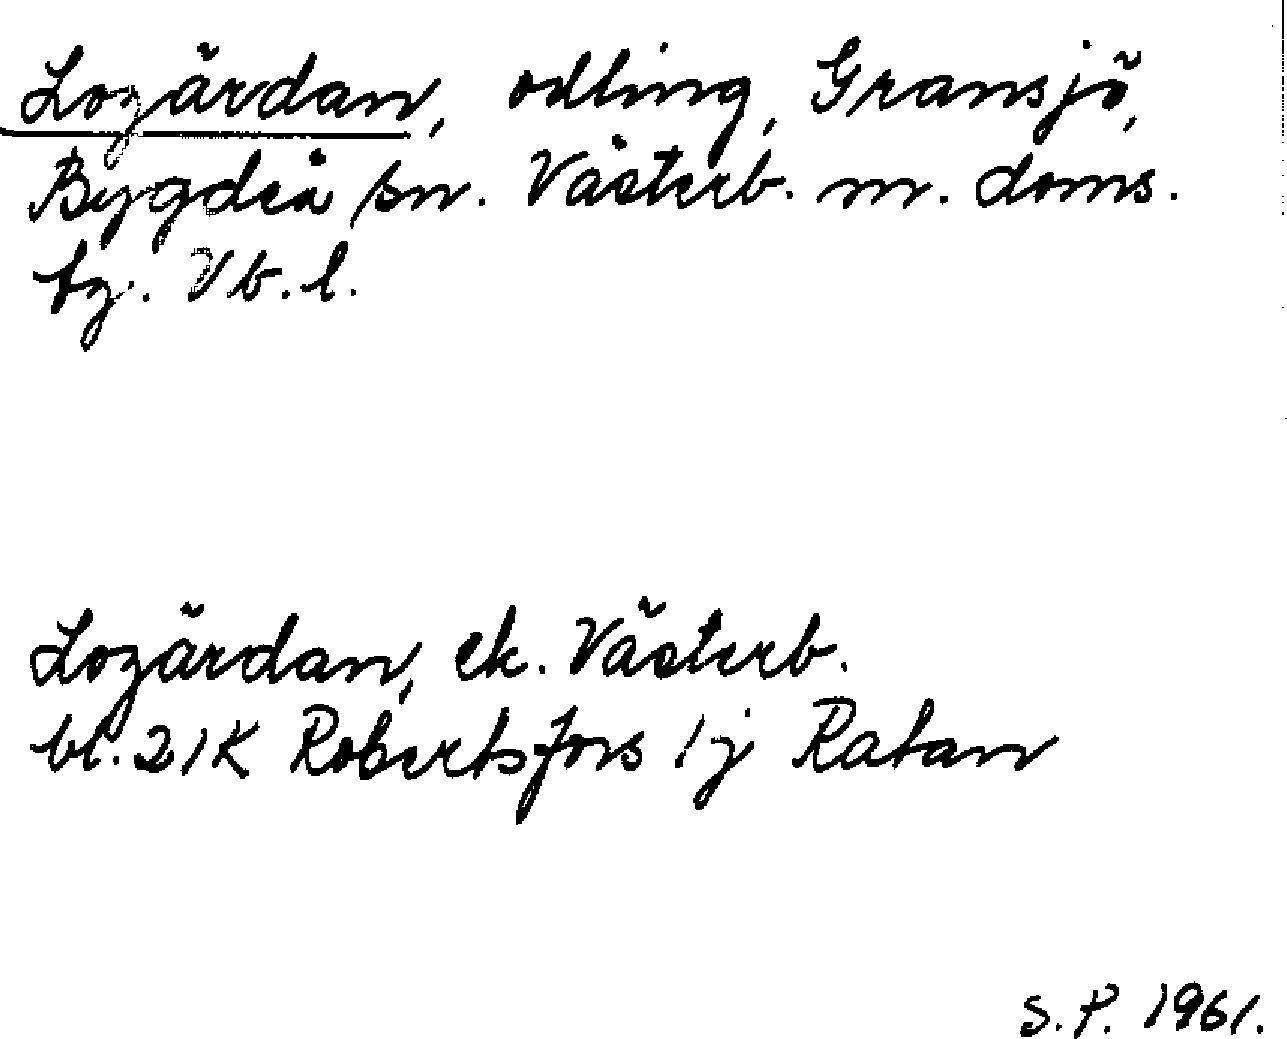 Logärdan, odling, Gransjö,
Bygdeå sn. Västerb. m. doms.
tg. Vb. l.
Logärdan, ek. Västerb.
bl. 21K Robertsfors 1j Ratan
S.P. 1961.